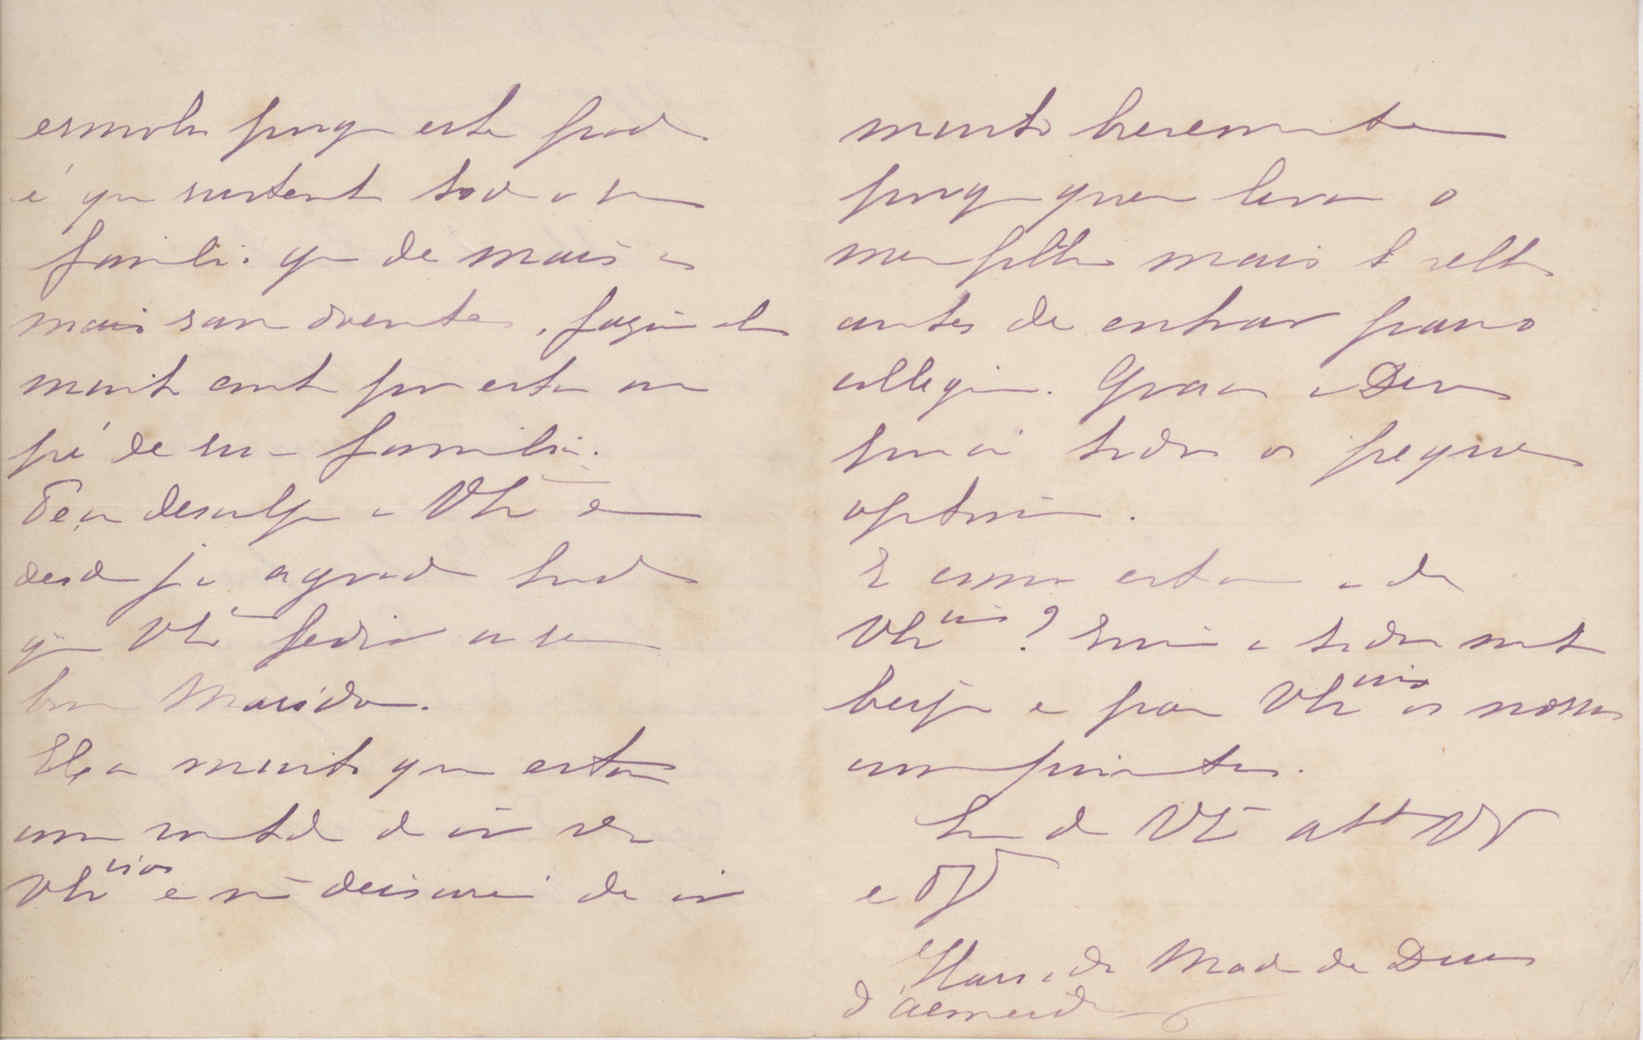 esmola porq este pad
é que sustenta toda a sua
familia que de mais a
mais sam doentes, fazia lhe
muita conta por estar ao
pé de sua familia.
Peço desculpa a VEx.ª e
desde já agradeço tudo
que VEx.ª pedir ao seu
bom Marido.
muito que estou
com vontade de ir ver
VEx.cias e não deixarei de ir
muito brevemente
porq quero levar o
meu filho mais velho
antes de entrar para o
collegio. Graças a Deus
por cá todos os pequenos
optimos.
E como estam os de
VEx.cias? Envio a todos muitos
beijos e para VEx.cias os nossos
cumprimentos.
Sou de VEx.ª att.ª Vr
e Obr
Maria da Madre de Deus
d'Almeida